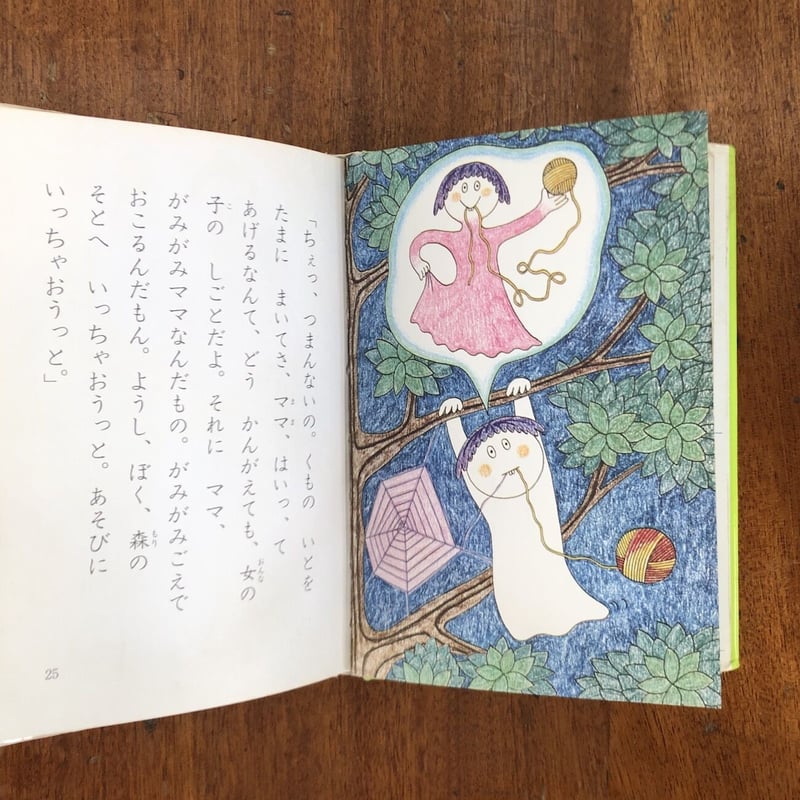 「ちぇっ、つまんないの。くもの　いとを
たまに　まいてさ、ママ、はいっ、て
あげるなんて、どう　かんがえても、女の
子の　しごとだよ。それに　ママ、
がみがみママなんだもの。がみがみごえで
おこるんだもん。ようし、ぼく、森の
そとへ　いっちゃおうっと。あそびに
いっちゃおうっと。」
25